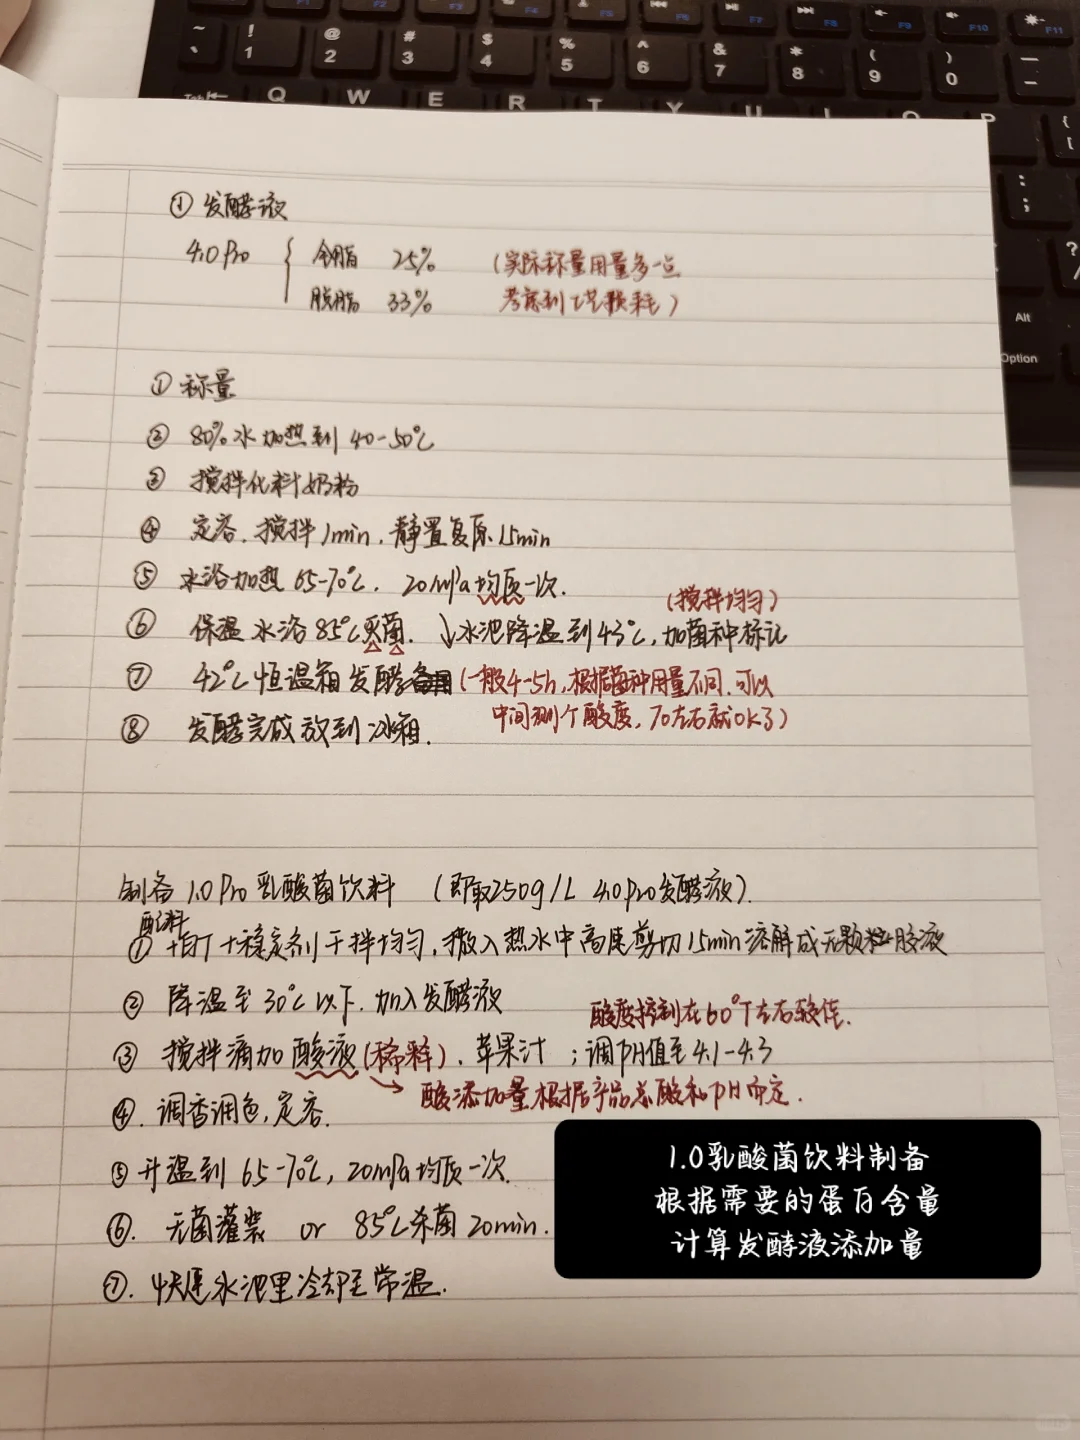 ① 发酵液
4.0 Pro { 全脂 25% (实际称量用量多一点
脱脂 33% 考虑到工艺损耗)
① 称量
② 80%水加热到 40-50℃
③ 搅拌化料奶粉
④ 定容.搅拌1min.静置复原15min
⑤ 水浴加热 65-70℃. 20mPa均质一次.
(搅拌均匀)
⑥ 保温水浴85℃灭菌. ↓水池降温到43℃,加菌种标记
⑦ 42℃恒温箱发酵 (一般4-5h,根据菌种用量不同.可以
中间测个酸度,70左右就OK了)
⑧ 发酵完成放到冰箱.
制备 1.0 Pro 乳酸菌饮料 (即取250g/L 4.0 Pro发酵液).
配料
① +稳定剂干拌均匀,撒入热水中高速剪切15min溶解成无颗粒胶液
② 降温至30℃以下.加入发酵液
酸度控制在60°T左右较佳.
③ 搅拌滴加酸液(稀释).苹果汁 ;调pH值至4.1-4.3
→ 酸添加量根据产品总酸和pH而定.
④. 调香调色,定容.
⑤ 升温到 65-70℃, 20mPa均质一次.
⑥. 无菌灌装 or 85℃杀菌20min.
⑦. 快速水池里冷却至常温.
1.0乳酸菌饮料制备
根据需要的蛋白含量
计算发酵液添加量